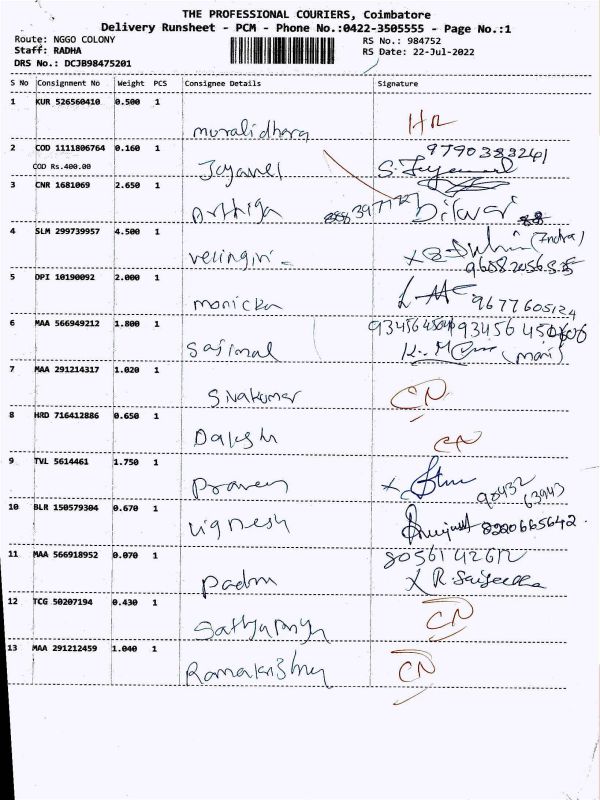 THE PROFESSIONAL COURIERS, Coimbatore
Delivery Runsheet - PCM - Phone No.:0422-3505555 - Page No.:1
Route: NGGO COLONY RS No.: 984752
Staff: RADHA RS Date: 22-Jul-2022
DRS No.: DCJB98475201
S No Consignment No Weight PCS Consignee Details Signature
1 KUR 526560410 0.500 1
muralidhara HR
2 COD 1111806764 0.160 1 9790383241
COD Rs.400.00 Jayavel S. Jayavel
3 CNR 1681069 2.650 1
Arthiga
4 SLM 299739957 4.500 1 (Indra)
velingiri
5 DPI 10190092 2.000 1
monicka 9677605124
6 MAA 566949212 1.800 1
(mani)
7 MAA 291214317 1.020 1
Sivakumar CN
8 HRD 716412886 0.650 1
Daksh CN
9 TVL 5614461 1.750 1
Praveen 90432
63943
10 BLR 150579304 0.670 1
Vignesh 8220665642
11 MAA 566918952 0.070 1 8056142612
Padma
12 TCG 50207194 0.430 1
CN
13 MAA 291212459 1.040 1
Ramakrishna CN